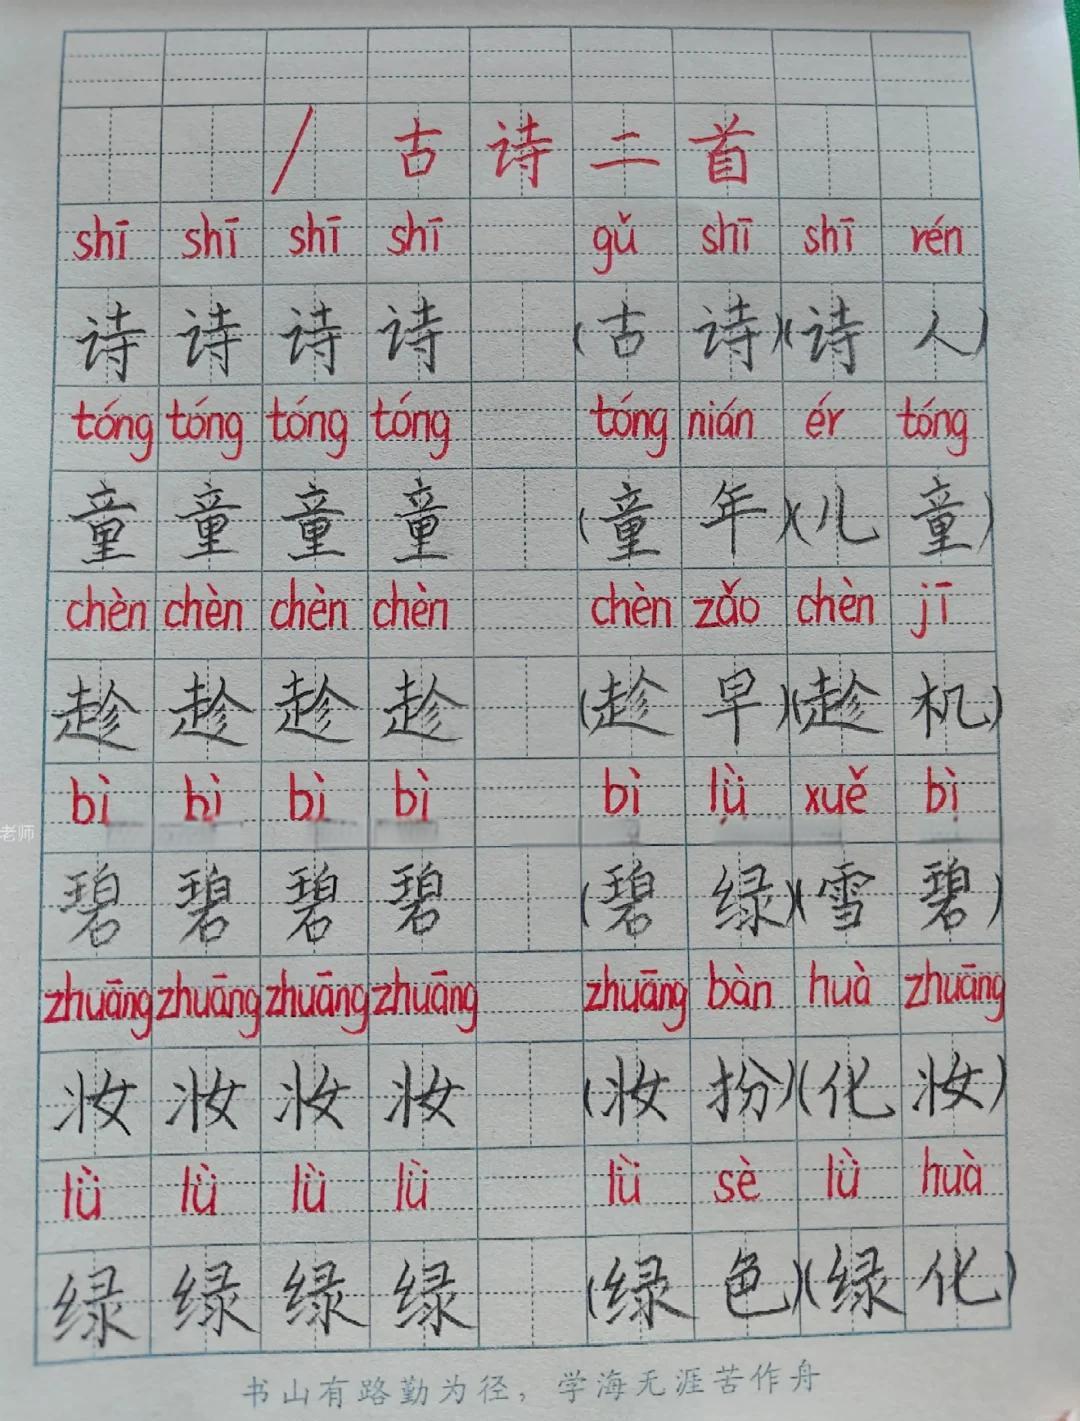 1 古诗二首
shī shī shī shī gǔ shī shī rén
诗 诗 诗 诗 (古诗)(诗人)
tóng tóng tóng tóng tóng nián ér tóng
童 童 童 童 (童年)(儿童)
chèn chèn chèn chèn chèn zǎo chèn jī
趁 趁 趁 趁 (趁早)(趁机)
bì bì bì bì bì lǜ xuě bì
老师
碧 碧 碧 碧 (碧绿)(雪碧)
zhuāng zhuāng zhuāng zhuāng zhuāng bàn huà zhuāng
妆 妆 妆 妆 (妆扮)(化妆)
lǜ lǜ lǜ lǜ lǜ sè lǜ huà
绿 绿 绿 绿 (绿色)(绿化)
书山有路勤为径，学海无涯苦作舟